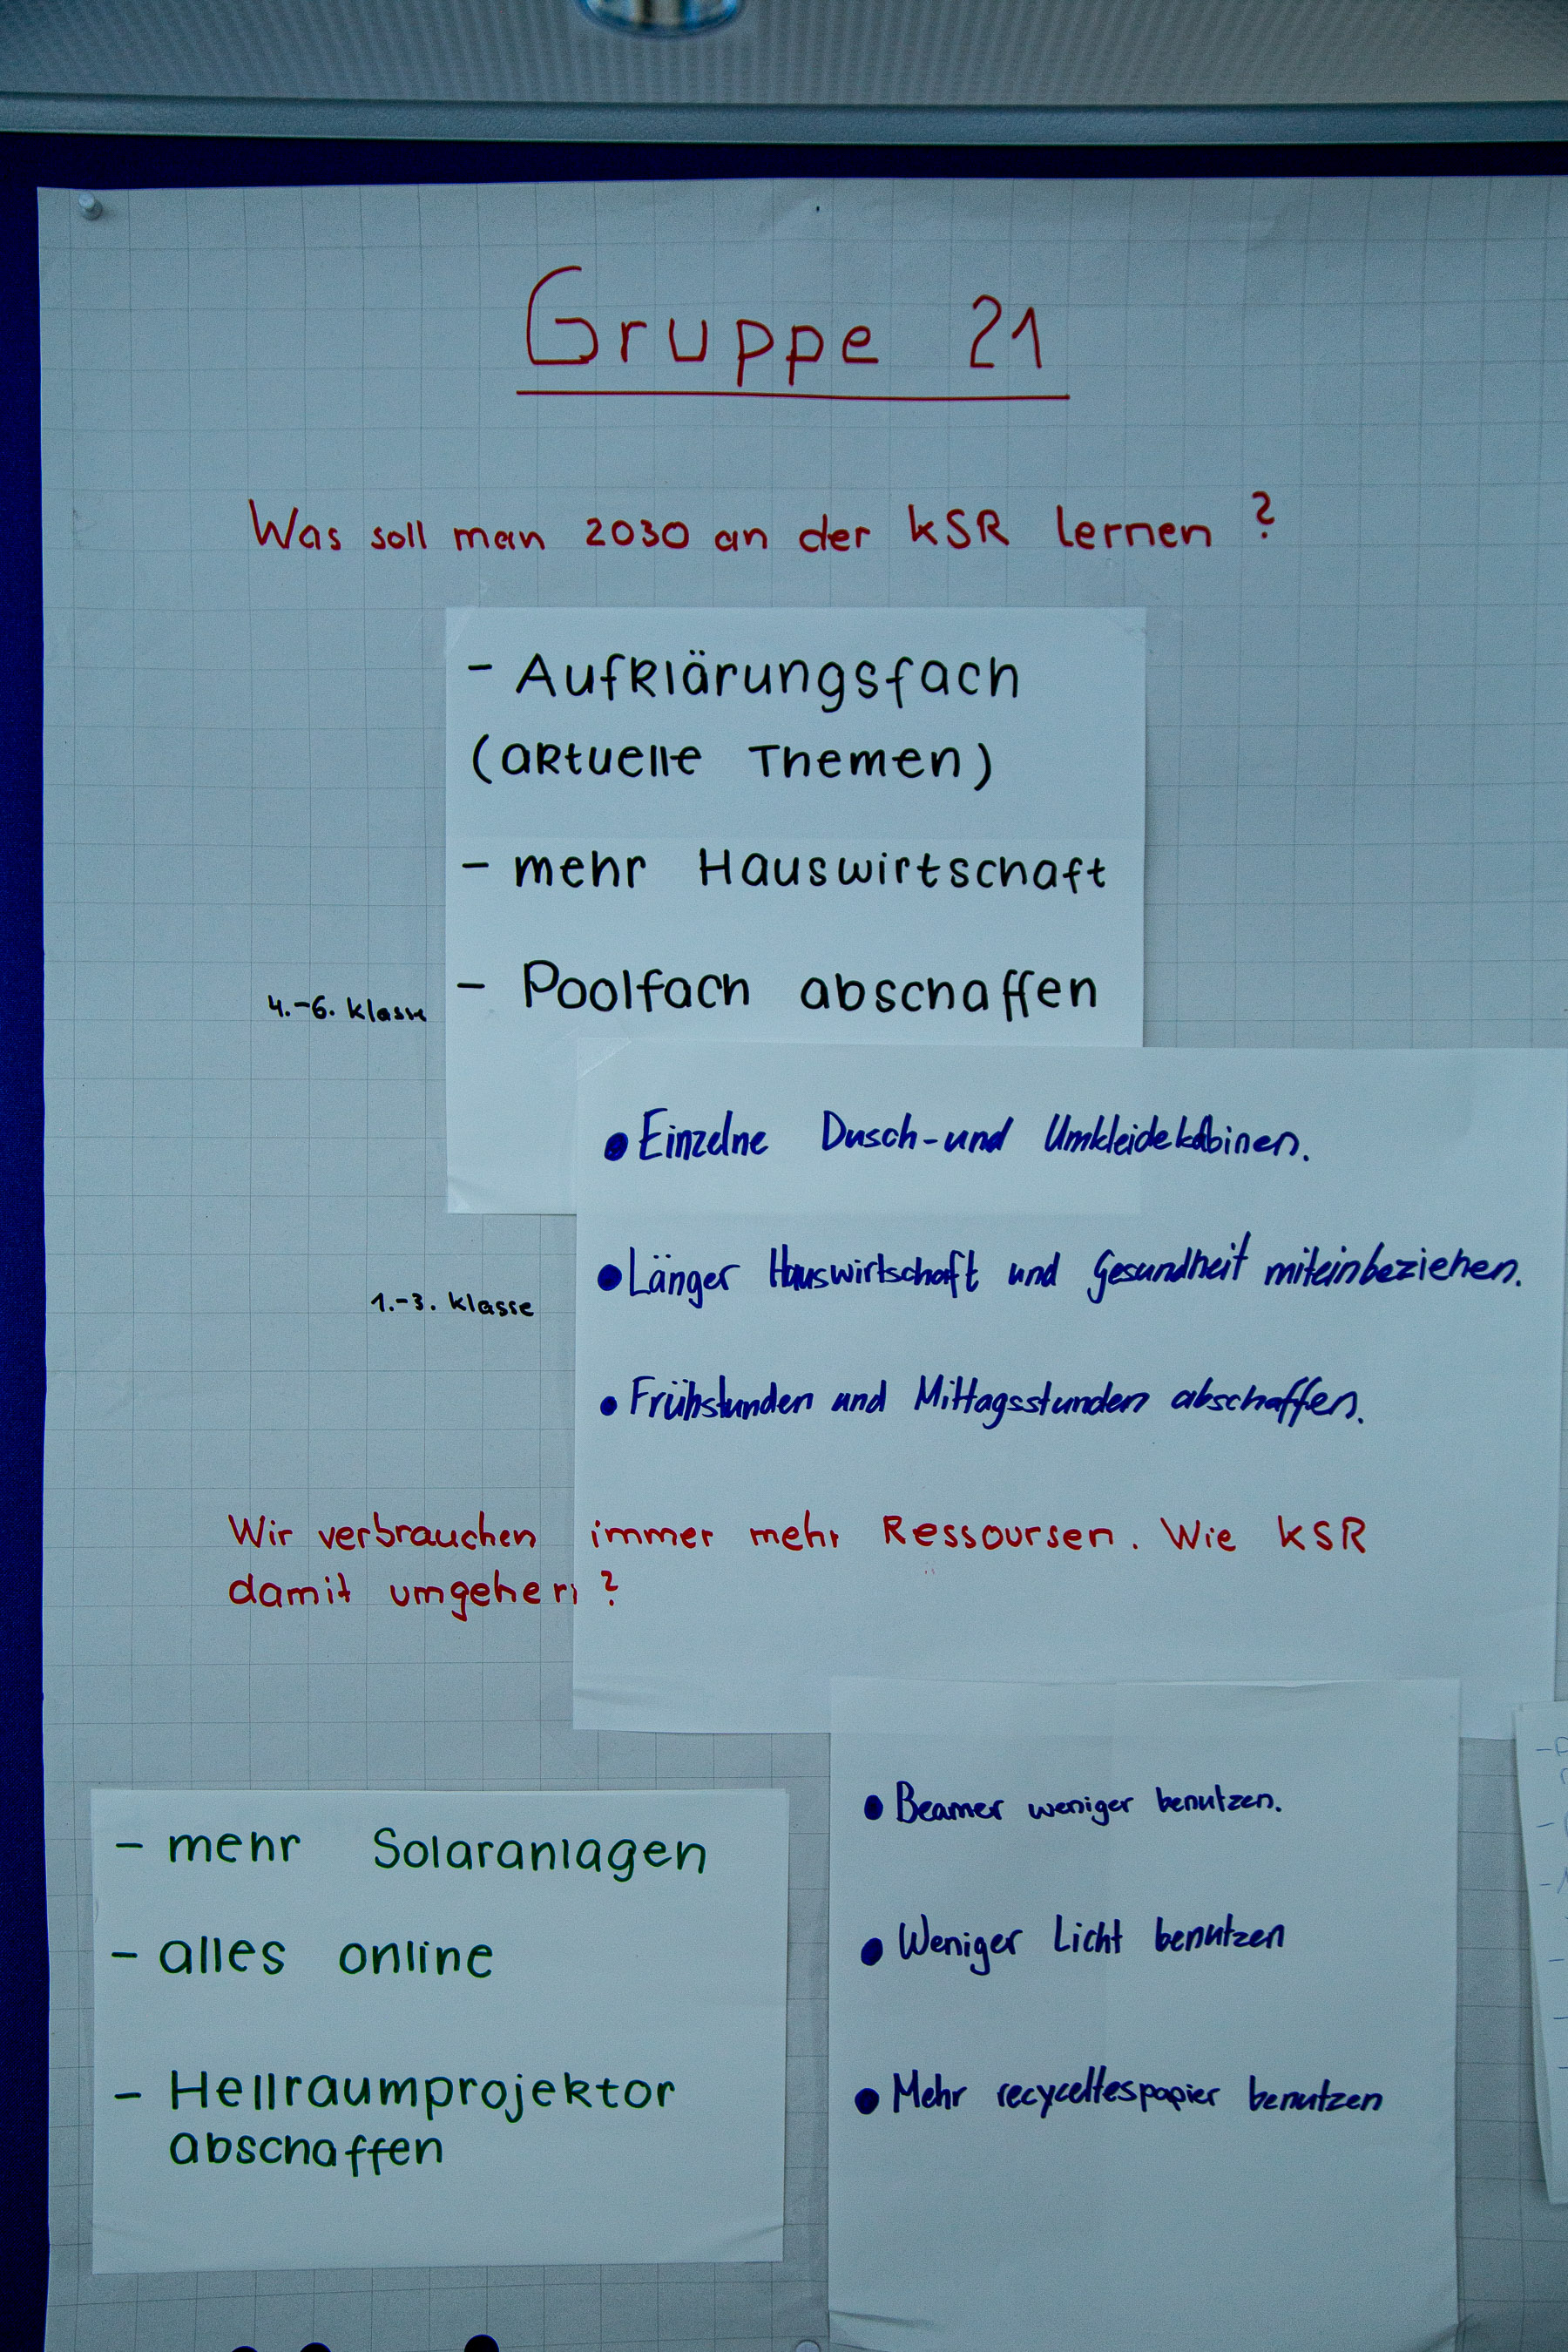 Gruppe 21
Was soll man 2030 an der KSR lernen ?
- Aufklärungsfach
(aktuelle Themen)
- mehr Hauswirtschaft
4.-6. Klasse
- Poolfach abschaffen
• Einzelne Dusch-und Umkleidekabinen.
• Länger Hauswirtschaft und Gesundheit miteinbeziehen.
1.-3. Klasse
• Frühstunden und Mittagsstunden abschaffen.
Wir verbrauchen immer mehr Ressoursen. Wie KSR
damit umgehen ?
- mehr Solaranlagen
- alles online
- Hellraumprojektor
abschaffen
• Beamer weniger benutzen.
• Weniger Licht benutzen
• Mehr recyceltespapier benutzen